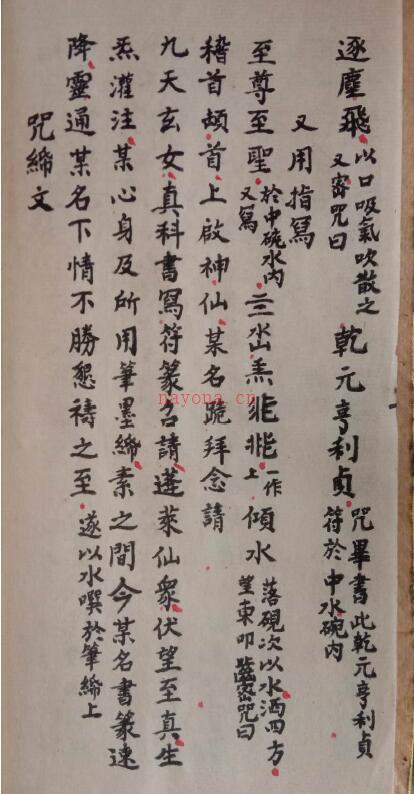 逐塵飛以口吸氣吹散之又密咒曰 乾元亨利貞咒畢書此乾元亨利貞符於中水碗内
又用指寫
至尊至聖於中碗水内又寫 水 一作上 傾水落硯次以水洒四方望東叩齒密咒曰
稽首頓首上啟神仙某名跪拜念請
九天玄女真科書寫符篆名請蓬萊仙衆伏望至真生
炁灌注某心身及所用筆墨締素之間今某名書篆速
降靈通某名下情不勝懇禱之至遂以水噀於筆締上
咒締文
nayona.cn